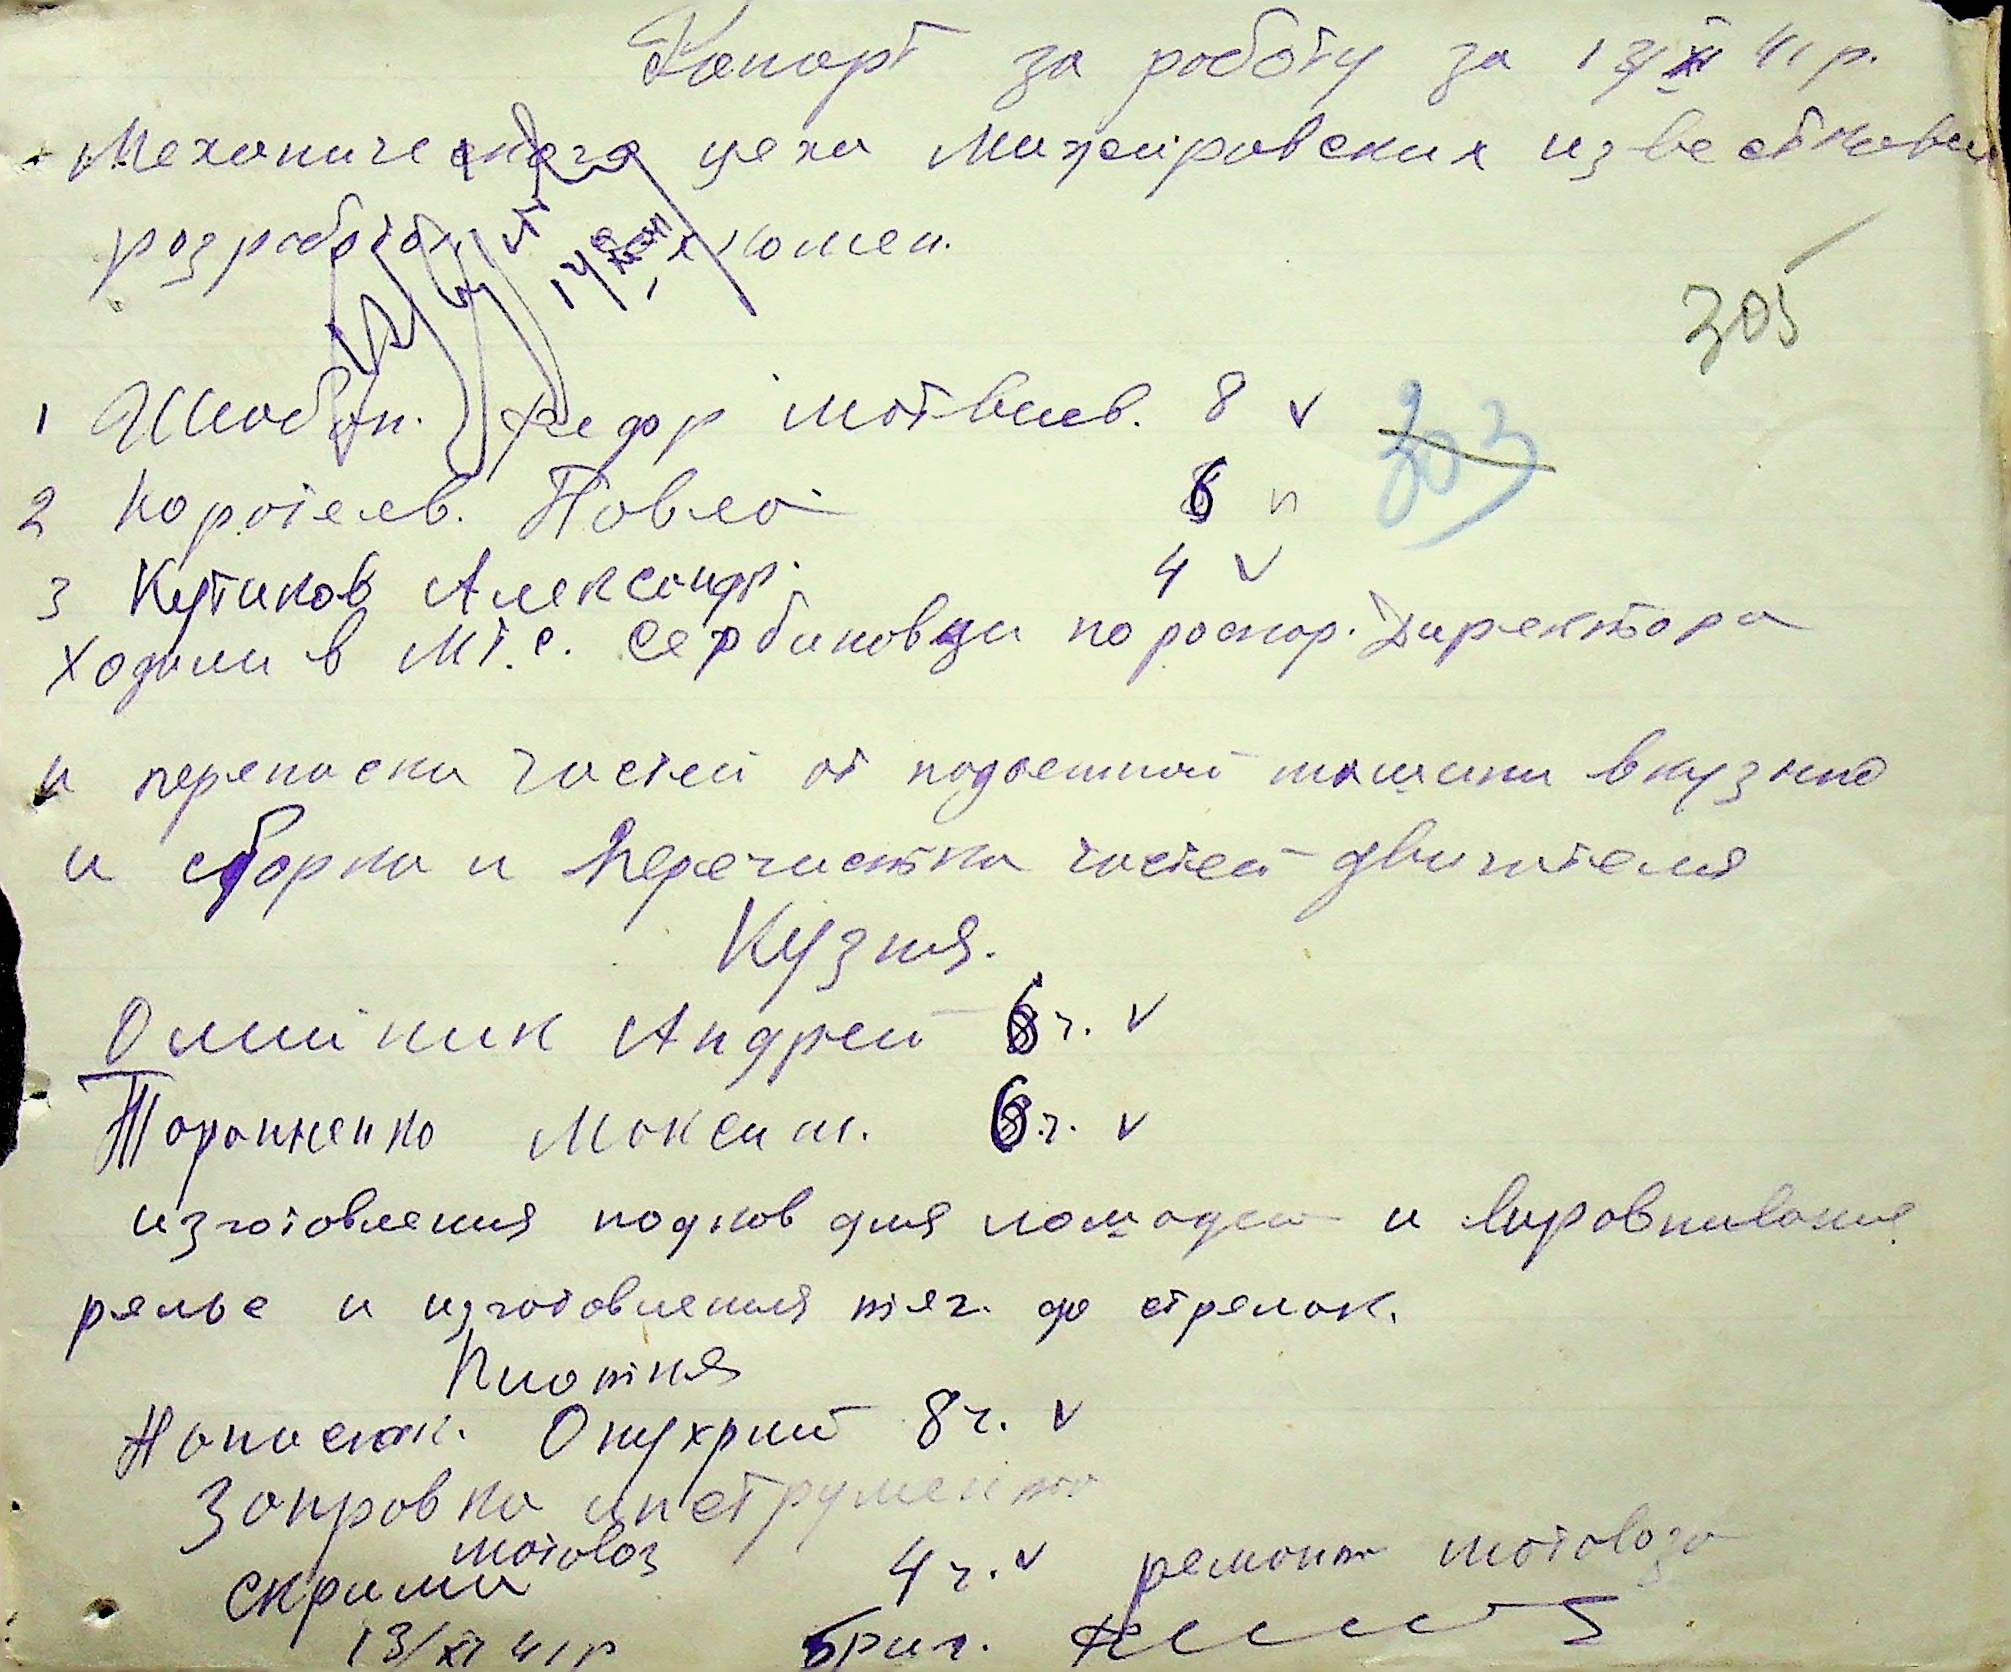 Рапорт за роботу за 13/XI 41 р.
Механического цеха Межировских известкових
розработок
305
1 Федор Матвеев. 8 v
303
2 Королев. Повло 6 п
3 Кутиков Александр. 4 v
ходили в М.Т.С. Сербиновци по роспор. Директора
и переноска частей от подьемной машини в кузню
и сборка и перечистка частей двигателя
Кузня.
Олийник Андрей 6 ч. v
Максим. 6 ч. v
изготовления подков для лошадей и вировнивание
рельс и изготовления тяг. до стрелок.
Плотня
Онухрий 8 ч. v
Заправка инструмента
мотовоз
4 ч. v ремонт мотовоза
13/XI 41 р бриг.